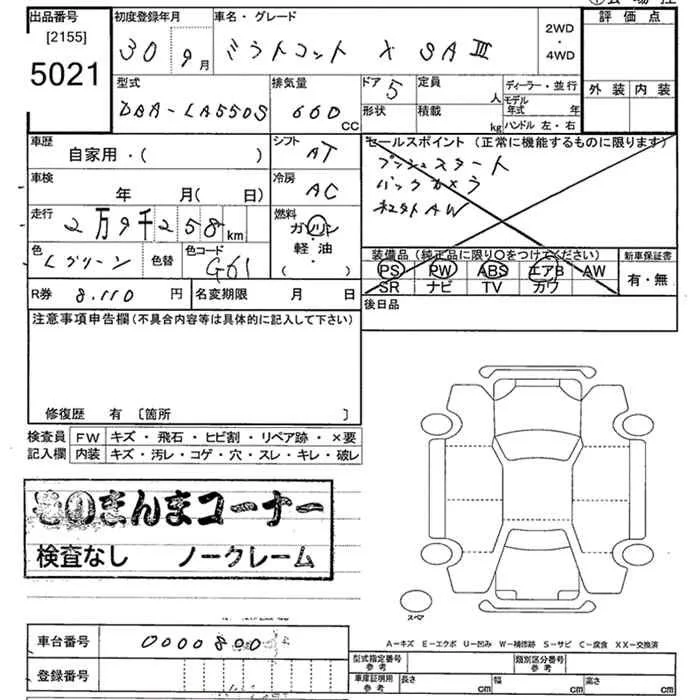 出品番号
[2155]
5021
初度登録年月
30 9月
車名・グレード
ミラトコット X SAⅢ
2WD
・
4WD
評価点
型式
DBA-LA550S
排気量
660
CC
ドア
5
定員
人
ディーラー・並行
形状
積載
kg
モデル年式 年
ハンドル 左・右
外装 内装
車歴
自家用・( )
シフト
AT
セールスポイント(正常に機能するものに限ります)
プッシュスタート
バックカメラ
社外AW
車検
年 月( 日)
冷房
AC
走行
2万9千258km
燃料
ガソリン
軽・油
( )
色
Lグリーン
色替
色コード
G61
装備品(純正品に限り○をつけてください)
PS PW ABS エアB AW
SR ナビ TV カワ
新車保証書
有・無
R券 8.110 円
名変期限 月 日
後日品
注意事項申告欄(不具合内容等は具体的に記入して下さい)
修復歴 有 〔箇所 〕
検査員 FW キズ・飛石・ヒビ割・リペア跡・×要
記入欄 内装 キズ・汚レ・コゲ・穴・スレ・キレ・破レ
そのまんまコーナー
検査なし ノークレーム
スペア
A-キズ E-エクボ U-凹み W-補修跡 S-サビ C-腐食 XX-交換済
車台番号 0000800
登録番号
型式指定番号
参考
類別区分番号
参考
車庫証明用
参考
長さ cm 幅 cm 高さ cm